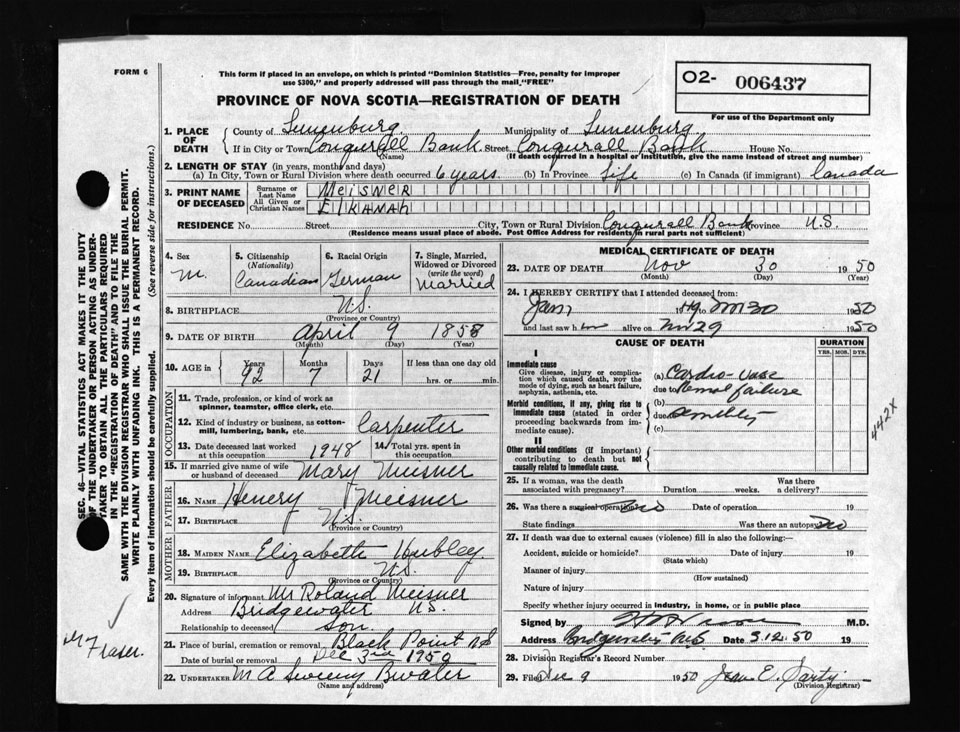 FORM 6
This form if placed in an envelope, on which is printed "Dominion Statistics—Free, penalty for improper
use $300," and properly addressed will pass through the mail "FREE"
O2- 006437
For use of the Department only
PROVINCE OF NOVA SCOTIA—REGISTRATION OF DEATH
1. PLACE OF DEATH
County of Lunenburg. Municipality of Lunenburg.
If in City or Town Conquerall Bank. Street Conquerall Bank House No.
(Name) (If death occurred in a hospital or institution, give the name instead of street and number)
2. LENGTH OF STAY (in years, months and days)
(a) In City, Town or Rural Division where death occurred 6 years. (b) In Province Life (c) In Canada (if immigrant) Canada
3. PRINT NAME OF DECEASED
Surname or Last Name MEISNER
All Given or Christian Names ElKANAh
RESIDENCE No. Street City, Town or Rural Division Conquerall Bank Province N.S.
(Residence means usual place of abode. Post Office Address for residents in rural parts not sufficient)
4. Sex M.
5. Citizenship (Nationality) Canadian
6. Racial Origin German
7. Single, Married, Widowed or Divorced (write the word) Married
8. BIRTHPLACE N.S.
(Province or Country)
9. DATE OF BIRTH April 9 1858
(Month) (Day) (Year)
10. AGE in Years 92 Months 7 Days 21 If less than one day old hrs. or min.
OCCUPATION
11. Trade, profession, or kind of work as spinner, teamster, office clerk, etc.
12. Kind of industry or business, as cotton-mill, lumbering, bank, etc. Carpenter
13. Date deceased last worked at this occupation 1948 14. Total yrs. spent in this occupation
15. If married give name of wife or husband of deceased Mary Meisner
FATHER
16. NAME Henery J Meisner
17. BIRTHPLACE N.S.
(Province or Country)
MOTHER
18. MAIDEN NAME Elizabeth Hubley
19. BIRTHPLACE N.S.
(Province or Country)
20. Signature of informant Mr Roland Meisner
Address Bridgewater N.S.
Relationship to deceased Son.
21. Place of burial, cremation or removal Black Point N S
Date of burial or removal Dec 3rd 1950
22. UNDERTAKER M A Sweeny Bwater
(Name and address)
MEDICAL CERTIFICATE OF DEATH
23. DATE OF DEATH Nov 30 1950
(Month) (Day) (Year)
24. I HEREBY CERTIFY that I attended deceased from:
Jan, 1949 to Nov 30 1950
and last saw him alive on Nov 29 1950
CAUSE OF DEATH DURATION
YRS. MOS. DYS.
I
Immediate cause
Give disease, injury or complication which caused death, not the mode of dying, such as heart failure, asphyxia, asthenia, etc.
(a) Cardio-vasc
due to Renal failure
Morbid conditions, if any, giving rise to immediate cause (stated in order proceeding backwards from immediate cause).
(b)
due to Senility
(c)
II
Other morbid conditions (if important) contributing to death but not causally related to immediate cause.
442X
25. If a woman, was the death associated with pregnancy? Duration weeks. Was there a delivery?
26. Was there a surgical operation? No Date of operation 19
State findings Was there an autopsy? No
27. If death was due to external causes (violence) fill in also the following:
Accident, suicide or homicide? Date of injury 19
(State which)
Manner of injury
(How sustained)
Nature of injury
Specify whether injury occurred in industry, in home, or in public place
Signed by M.D.
Address Bridgewater NS Date 3.12.50 19
28. Division Registrar's Record Number
29. Filed Dec 9 1950 Jean E. Sarty
(Division Registrar)
SEC. 46—VITAL STATISTICS ACT MAKES IT THE DUTY
OF THE UNDERTAKER OR PERSON ACTING AS UNDER-
TAKER TO OBTAIN ALL THE PARTICULARS REQUIRED
IN THE "REGISTRATION OF DEATH" AND TO FILE THE
SAME WITH THE DIVISION REGISTRAR WHO SHALL ISSUE THE BURIAL PERMIT.
WRITE PLAINLY WITH UNFADING INK. THIS IS A PERMANENT RECORD.
Every item of information should be carefully supplied. (See reverse side for instructions.)
Fraser.